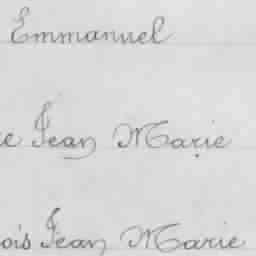 Emmanuel
ce Jean Marie
ois Jean Marie